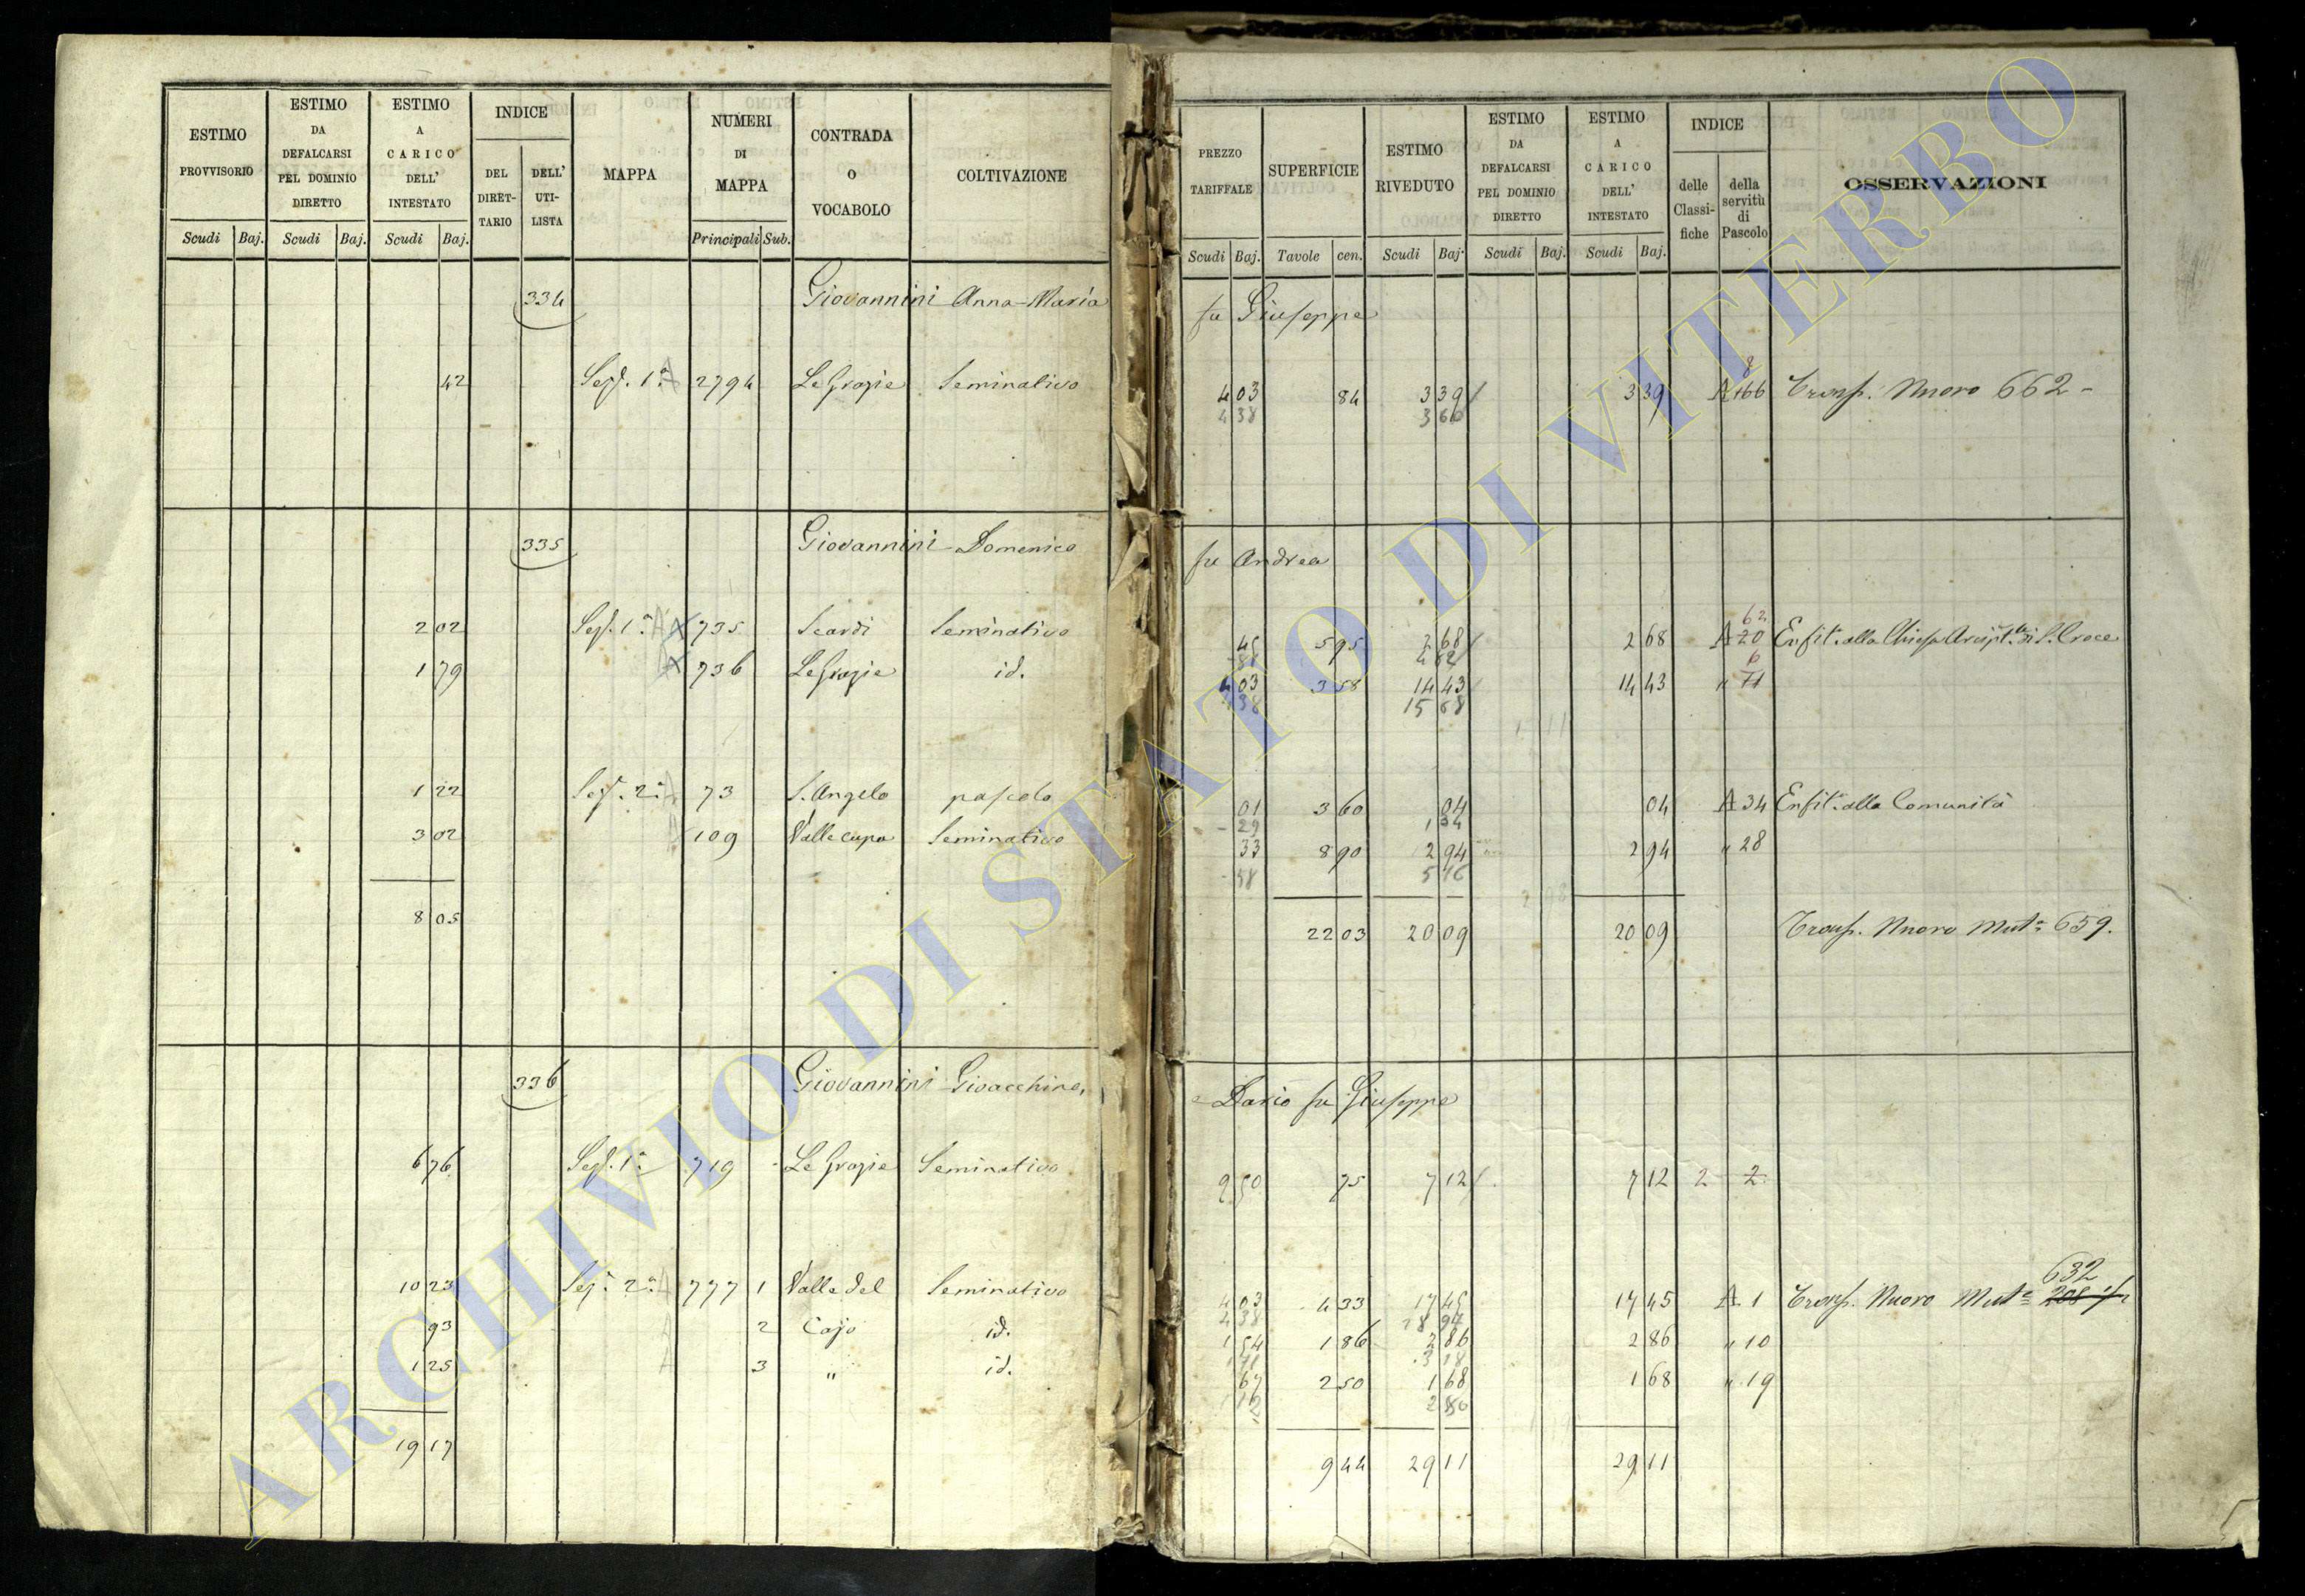 ESTIMO PROVVISORIO
ESTIMO DA DEFALCARSI PEL DOMINIO DIRETTO
ESTIMO A CARICO DELL' INTESTATO
INDICE
DEL DIRETTARIO
DELL' UTILISTA
MAPPA
NUMERI DI MAPPA
CONTRADA O VOCABOLO
COLTIVAZIONE
Scudi Baj. Scudi Baj. Scudi Baj. Principali Sub.
334 Giovannini Anna-Maria
42 Sez. 1ª A 2794 Le Grazie Seminativo
335 Giovannini Domenico
2 02 Sez. 1ª A 735 Scardi Seminativo
1 79 A 736 Le Grazie id.
1 22 Sez. 2ª A 73 S. Angelo pascolo
3 02 A 109 Valle cupa Seminativo
8 05
336 Giovannini Gioacchino,
6 76 Sez. 1ª 719 Le Grazie Seminativo
10 23 Sez. 2ª A 777 1 Valle del Seminativo
93 A 2 Cajo id.
1 25 A 3 " id.
19 17
PREZZO TARIFFALE
SUPERFICIE
ESTIMO RIVEDUTO
ESTIMO DA DEFALCARSI PEL DOMINIO DIRETTO
ESTIMO A CARICO DELL' INTESTATO
INDICE
delle Classifiche
della servitù di Pascolo
OSSERVAZIONI
Scudi Baj. Tavole cen. Scudi Baj. Scudi Baj. Scudi Baj.
fu Giuseppe
8
4 03 84 3 39 3 39 A 166 Trasp. Nuovo 662
4 38 3 66
fu Andrea
62
45 5 95 2 68 2 68 A 20 Enfit. alla Chiesa di S. Croce
4 82
6
4 03 3 58 14 43 14 43 " 71
4 38 15 68
01 3 60 04 04 A 34 Enfit. alla Comunità
29 1 04
33 8 90 2 94 2 94 " 28
58 5 16
22 03 20 09 20 09 Trasp. Nuovo Mutª 659.
e Dario fu Giuseppe
9 50 75 7 12 7 12 2 2
632
4 03 4 33 17 45 17 45 A 1 Trasp. Nuovo Mutª 208
4 38 18 97
1 54 1 86 2 86 2 86 " 10
1 71 3 18
67 2 50 1 68 1 68 " 19
1 12 2 80
9 44 29 11 29 11
ARCHIVIO DI STATO DI VITERBO